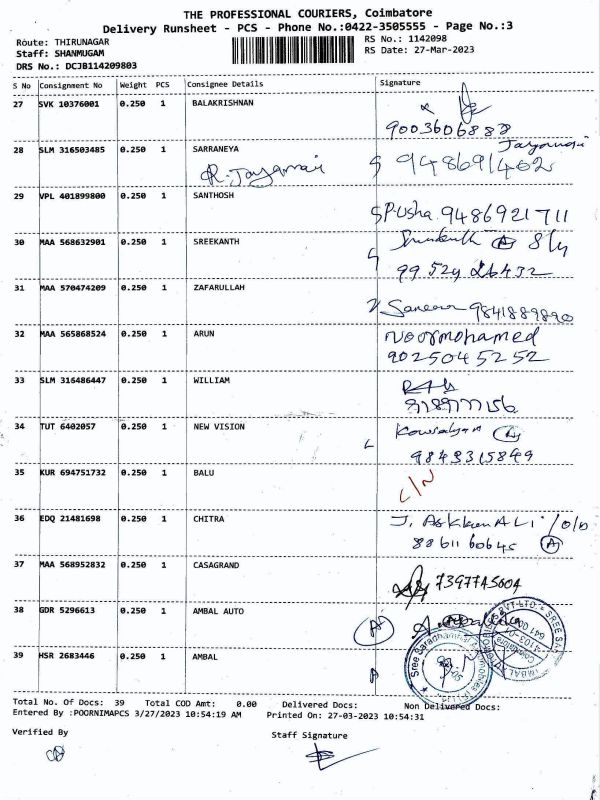 THE PROFESSIONAL COURIERS, Coimbatore
Delivery Runsheet - PCS - Phone No.:0422-3505555 - Page No.:3
Route: THIRUNAGAR
Staff: SHANMUGAM
DRS No.: DCJB114209803
RS No.: 1142098
RS Date: 27-Mar-2023
S No Consignment No Weight PCS Consignee Details Signature
27 SVK 10376001 0.250 1 BALAKRISHNAN
9003606888
28 SLM 316503485 0.250 1 SARRANEYA
9486914602
29 VPL 401899800 0.250 1 SANTHOSH
P.Usha 9486921711
30 MAA 568632901 0.250 1 SREEKANTH
99524 26432
31 MAA 570474209 0.250 1 ZAFARULLAH
9841889890
32 MAA 565868524 0.250 1 ARUN
Noormohamed
9025045252
33 SLM 316486447 0.250 1 WILLIAM
9189777156
34 TUT 6402057 0.250 1 NEW VISION
9843315849
35 KUR 694751732 0.250 1 BALU
L/N
36 EDQ 21481698 0.250 1 CHITRA
88611 60645 A
37 MAA 568952832 0.250 1 CASAGRAND
7397745604
38 GDR 5296613 0.250 1 AMBAL AUTO
A
39 HSR 2683446 0.250 1 AMBAL
A
Total No. Of Docs: 39 Total COD Amt: 0.00 Delivered Docs: Non Delivered Docs:
Entered By :POORNIMAPCS 3/27/2023 10:54:19 AM Printed On: 27-03-2023 10:54:31
Verified By
Staff Signature